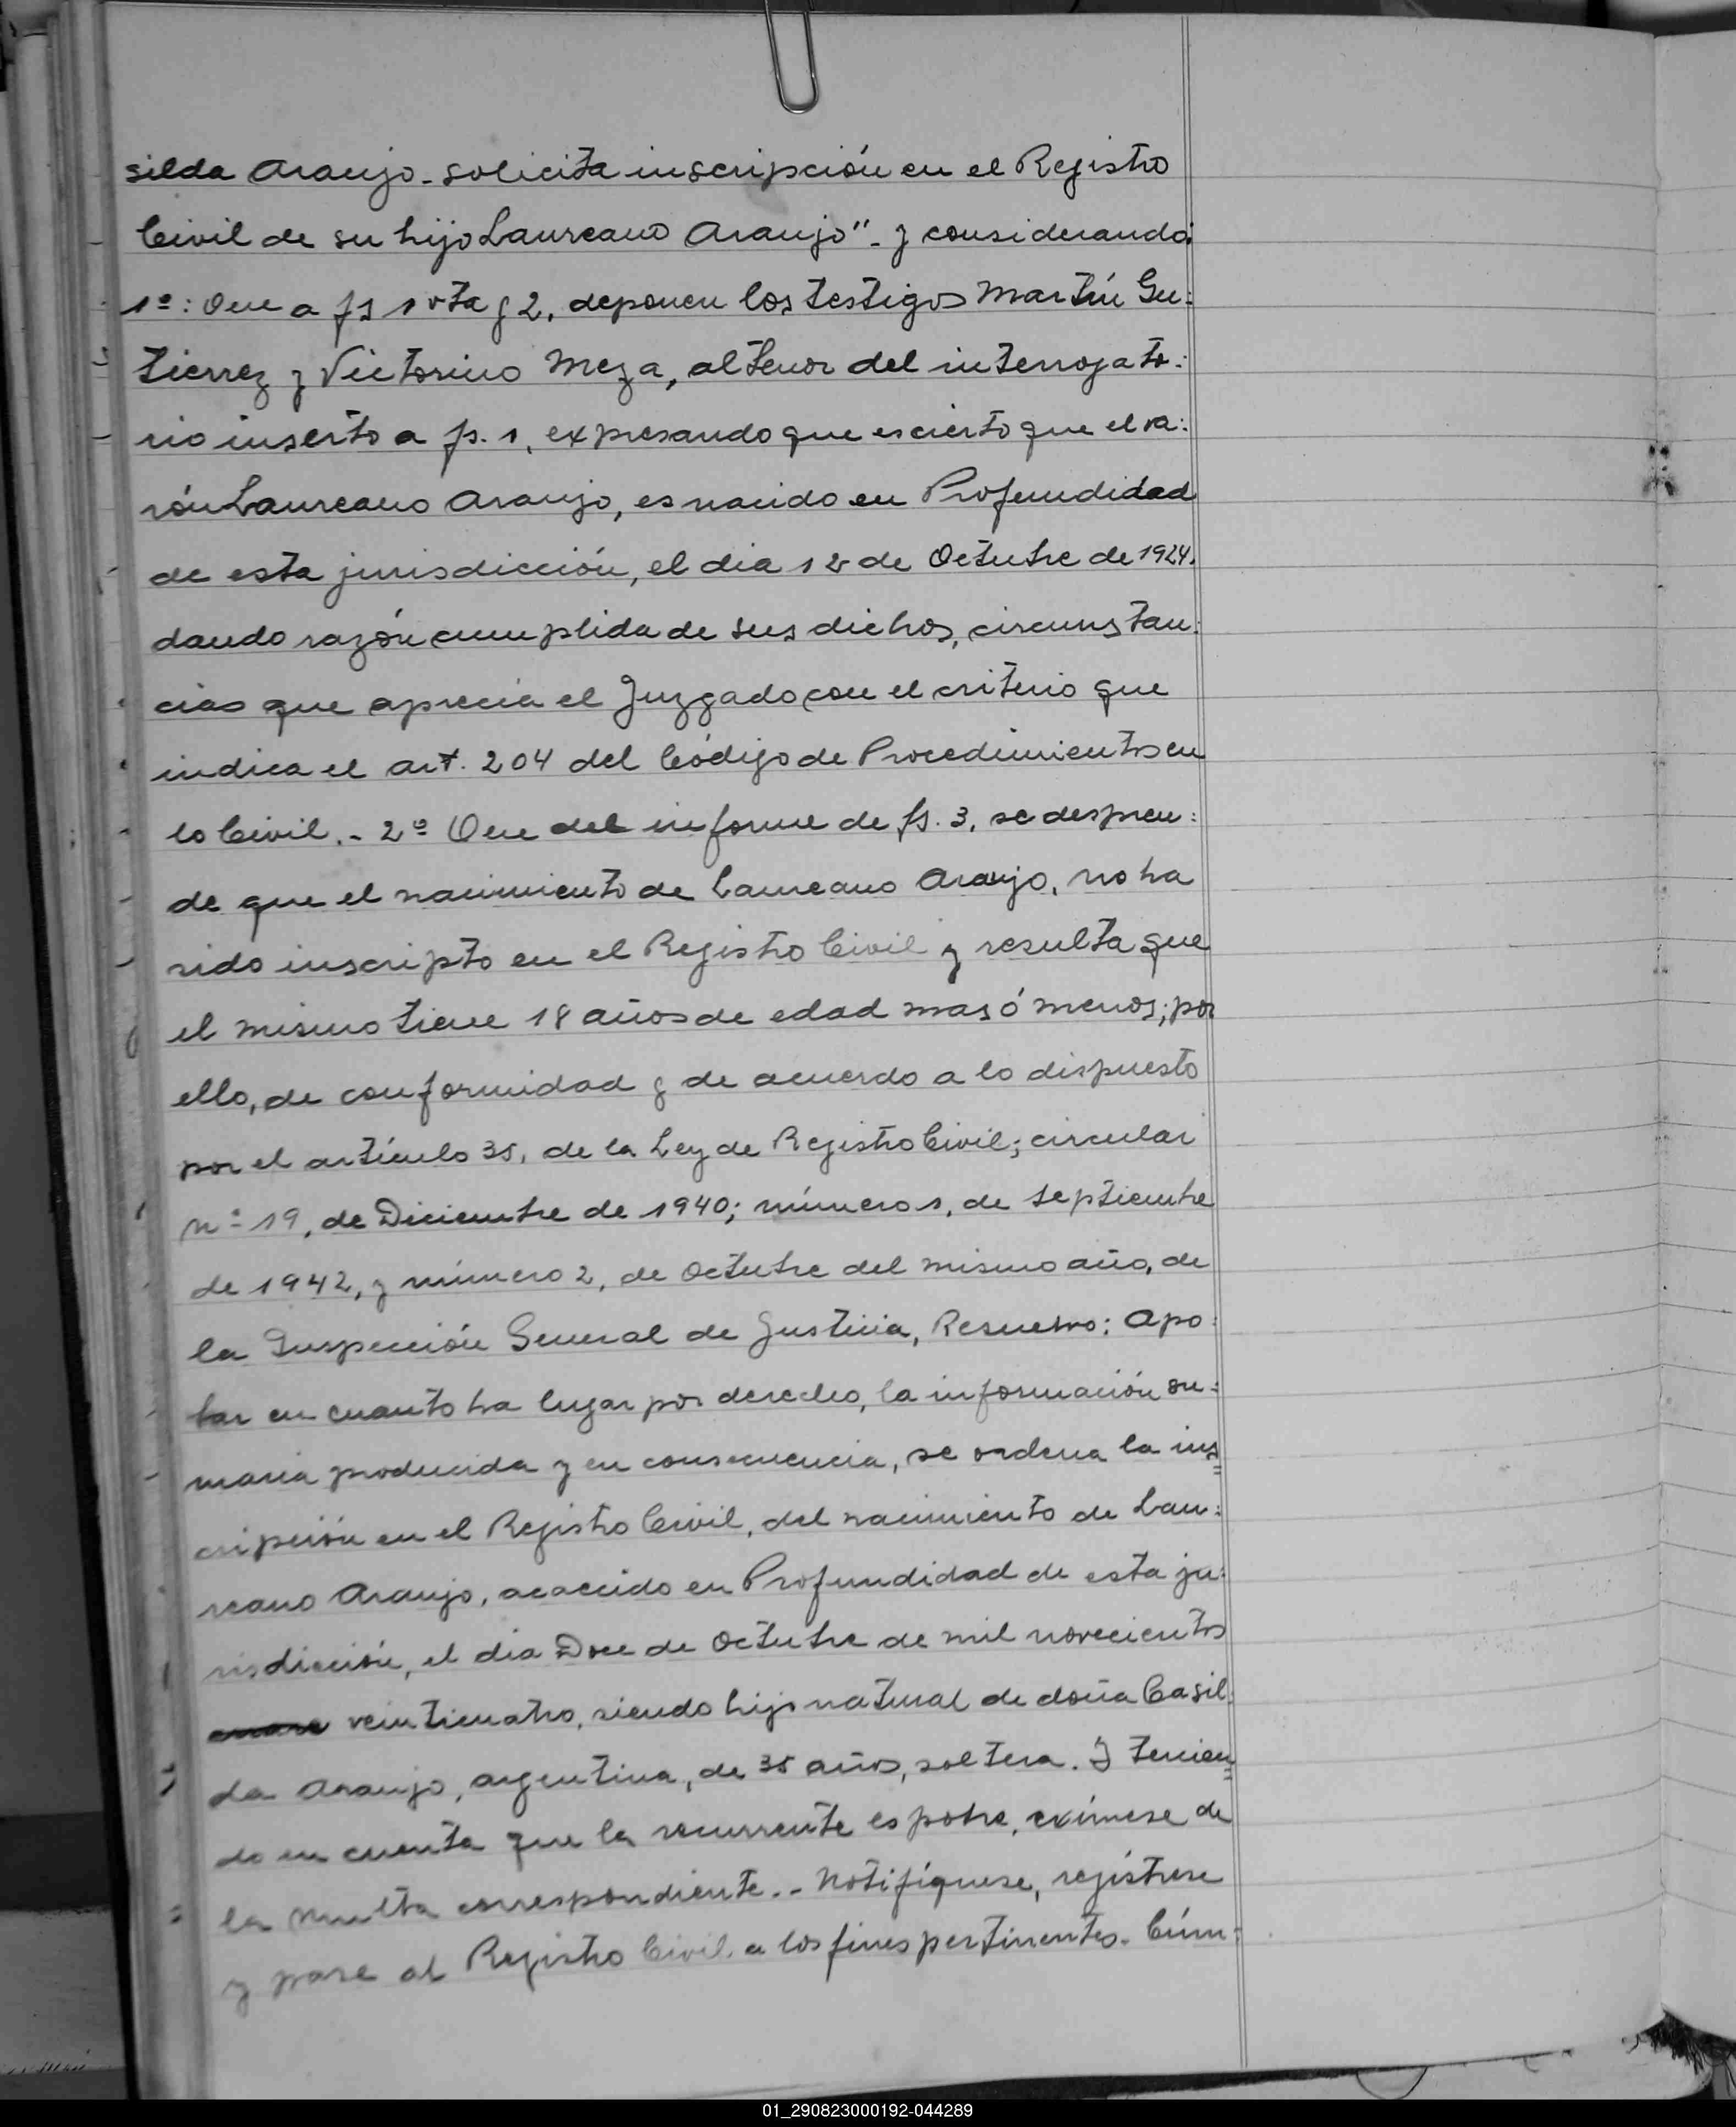 silda Araujo - solicita inscripción en el Registro
Civil de su hijo Laureano Araujo" - y considerando:
1º: Que a fs 1 vta y 2, deponen los testigos Martín Gu:
tierrez y Victorino Meza, al tenor del interrogato:
rio inserto a fs. 1, expresando que es cierto que el va:
rón Laureano Araujo, es nacido en Profundidad
de esta jurisdicción, el dia 12 de Octubre de 1924.
dando razón cumplida de sus dichos, circunstan:
cias que aprecia el Juzgado con el criterio que
indica el art. 204 del Código de Procedimientos en
lo Civil. - 2º Que del informe de fs. 3, se despren:
de que el nacimiento de Laureano Araujo, no ha
sido inscripto en el Registro Civil y resulta que
el mismo tiene 18 años de edad mas ó menos; por
ello, de conformidad y de acuerdo a lo dispuesto
por el artículo 35, de la Ley de Registro Civil; circular
nº 19, de Diciembre de 1940; número 1, de septiembre
de 1942, y número 2, de Octubre del mismo año, de
la Inspección General de Justicia, Resuelvo: Apo:
bar en cuanto ha lugar por derecho, la información su:
maria producida y en consecuencia, se ordena la ins=
cripción en el Registro Civil, del nacimiento de Lau:
reano Araujo, acaecido en Profundidad de esta ju:
risdicción, el dia Doce de Octubre de mil novecientos
veinticuatro, siendo hijo natural de doña Casil:
da Araujo, argentina, de 35 años, soltera. Y tenien=
do en cuenta que la recurrente es pobre, exímese de
la multa correspondiente. - Notifíquese, regístrese
y pase al Registro Civil a los fines pertinentes. Cúm:
01_290823000192-044289